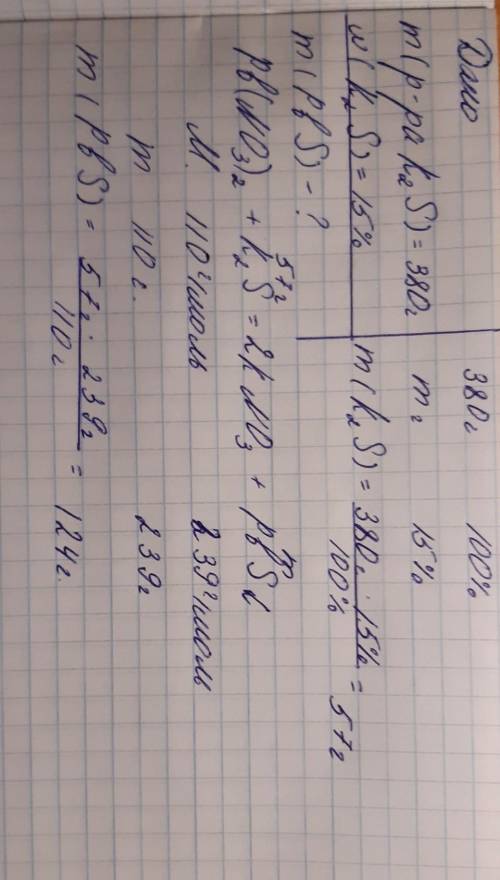 Дано
m(р-ра K₂S) = 380г
w(K₂S) = 15%
m(PbS) - ?
380г 100%
mг 15%
m(K₂S) = 380г · 15% / 100% = 57г
57г m
Pb(NO₃)₂ + K₂S = 2KNO₃ + PbS↓
M 110г/моль 239г/моль
m 110г. 239г
m(PbS) = 57г · 239г / 110г = 124г.